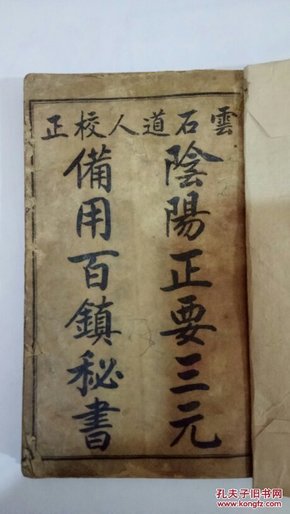 雲石道人校正
陰陽正要三元
備用百鎮秘書
孔夫子旧书网